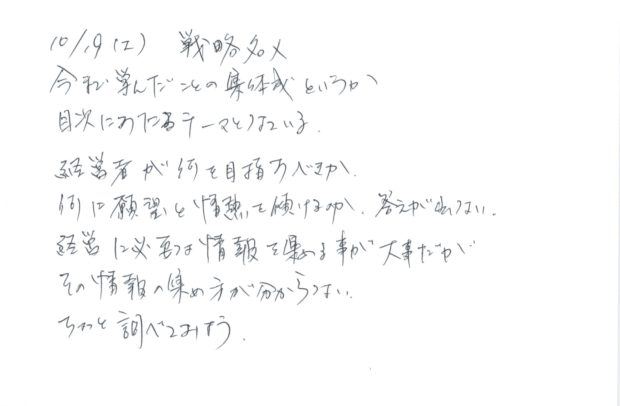 10/19(土) 戦略名人
今まで学んだことの集体成というか
目次にあたるテーマとなっている.
経営者が何を目指すべきか.
何に願望と情熱を傾けるのか. 答えが出ない.
経営に必要な情報を集める事が大事だが
その情報の集め方が分からない.
ちょっと調べてみよう.